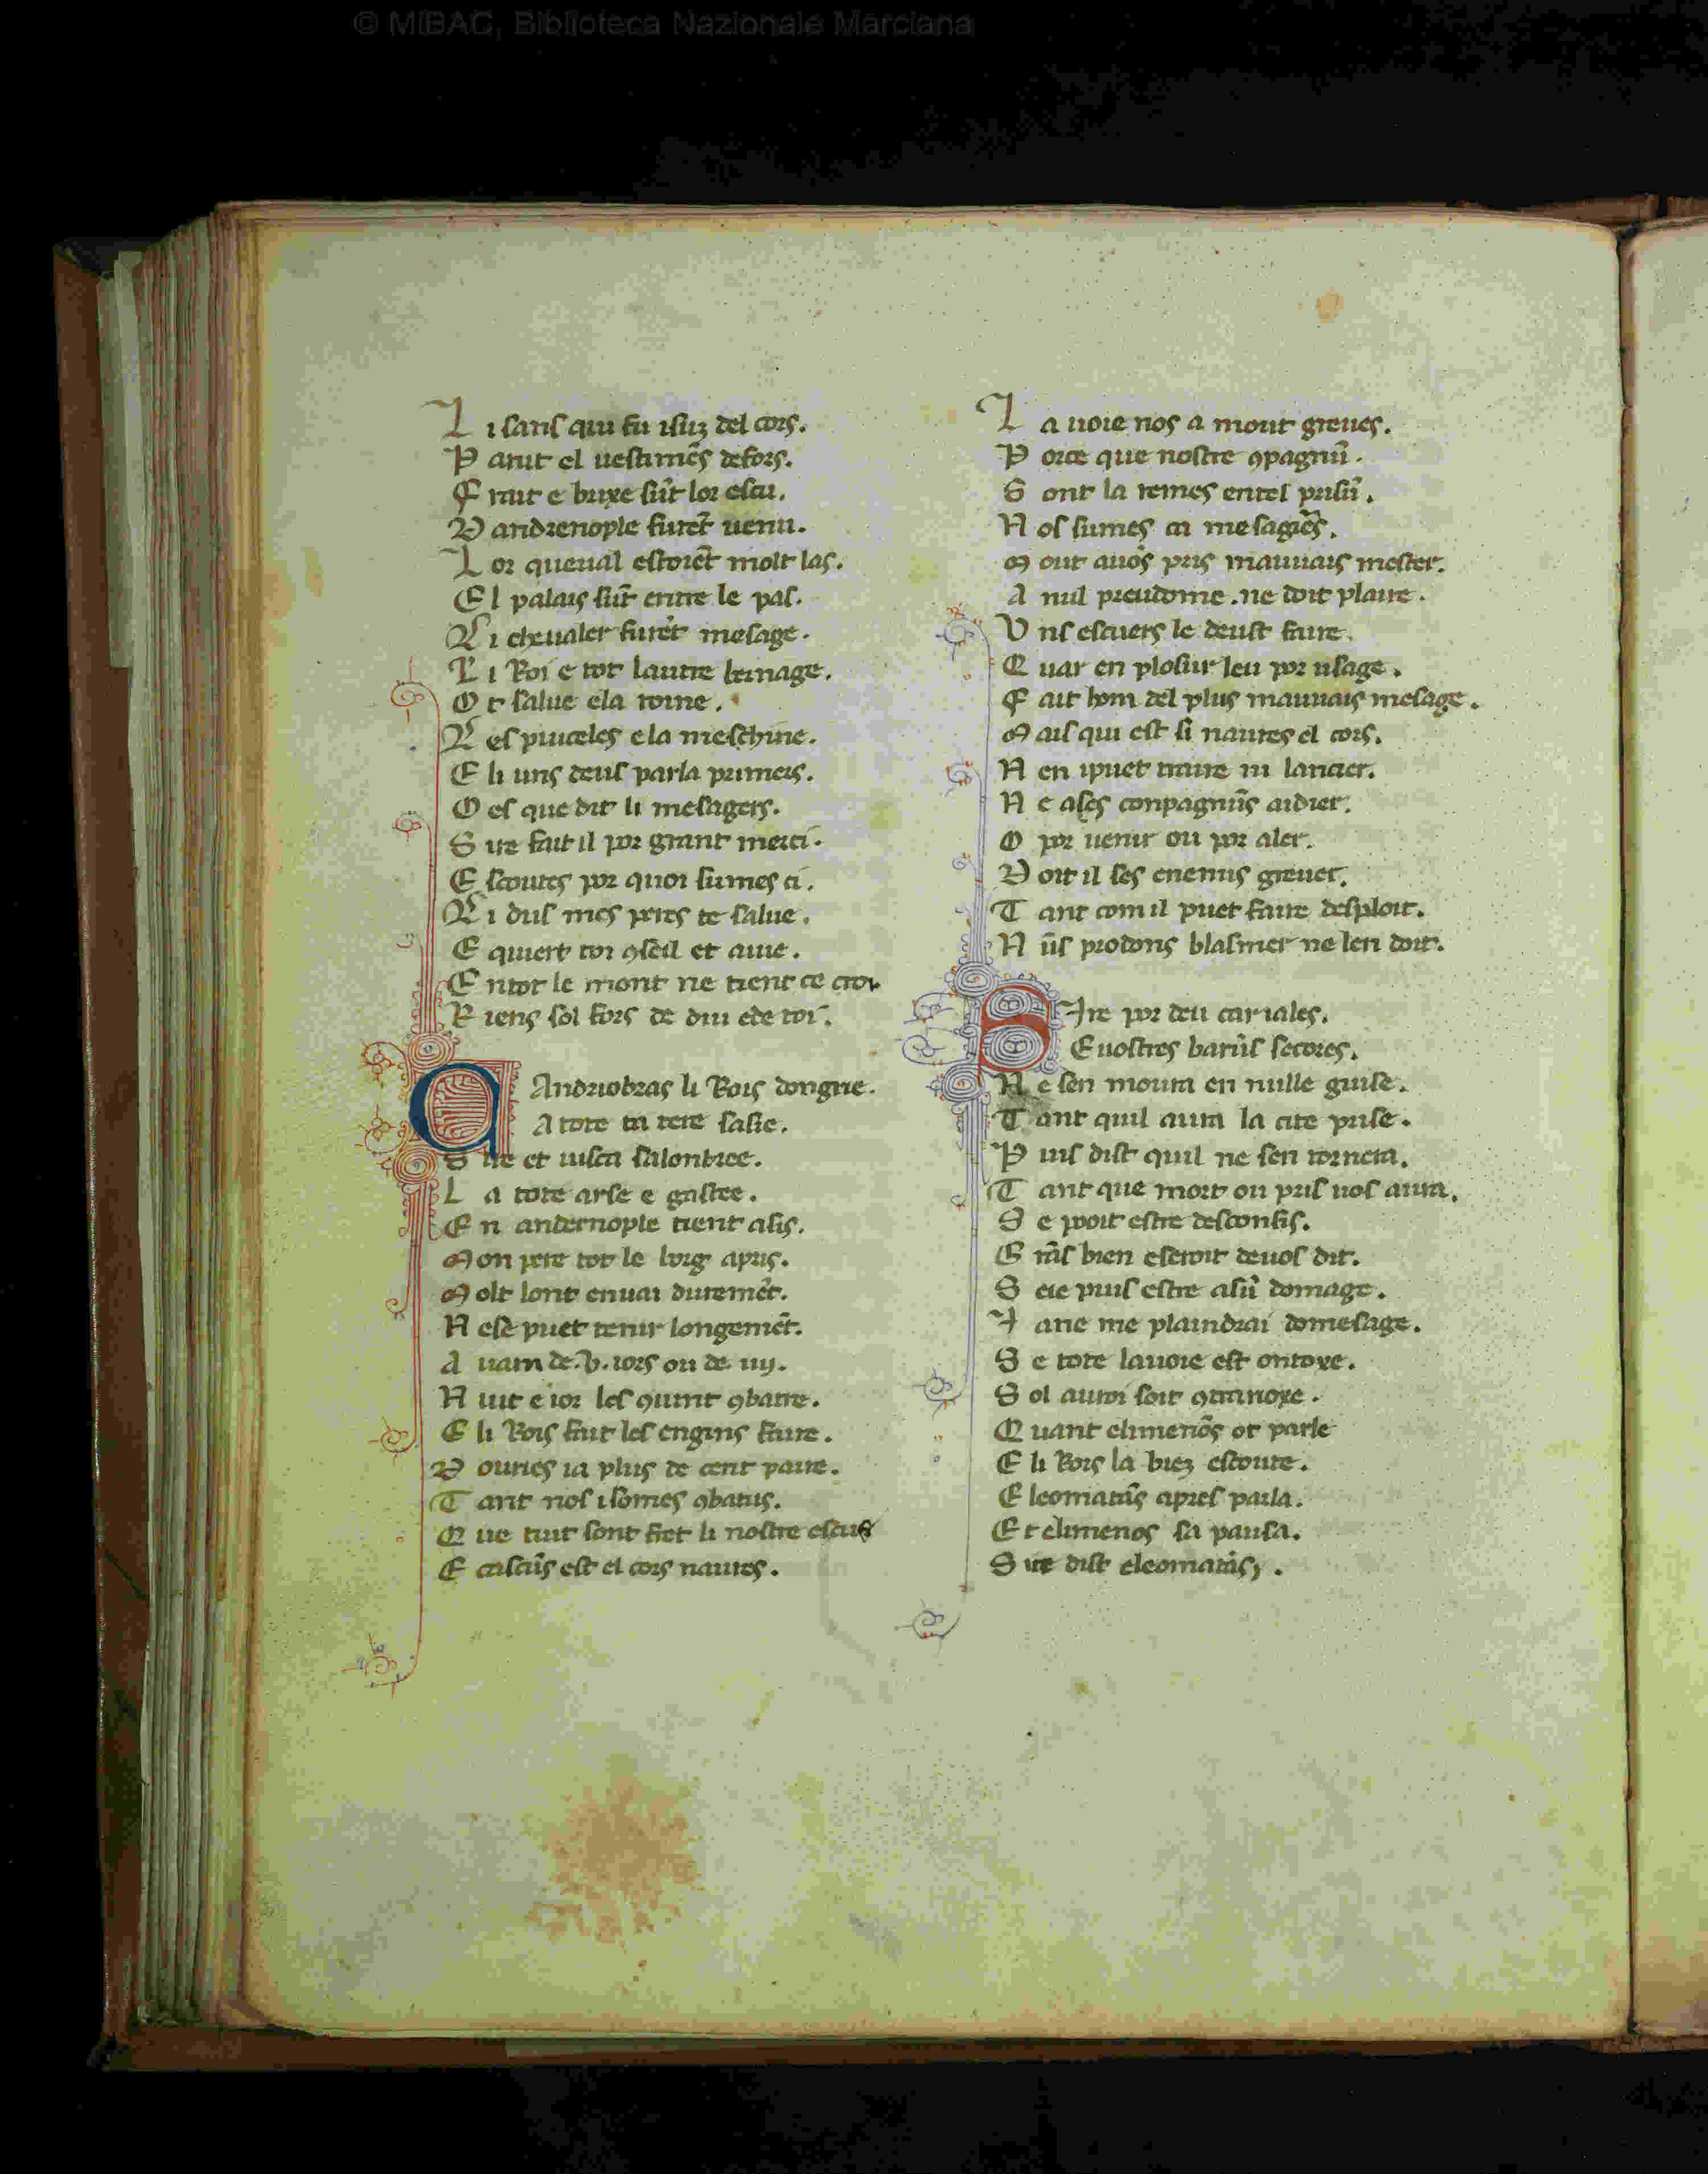 © MiBAC, Biblioteca Nazionale Marciana
L i sans qui fu isuz del cors.
P arut el uestimēs defors.
F rait e bruxe sūt lor escu.
D andrenople furēt uenu.
L or queual estoiēt molt las.
E l palais sūt entre le pas.
L i cheualer furēt mesage.
L i Roi e tot lautre bernage.
O t salue ela roine.
L es puceles ela meschine.
E li uns deus parla primers.
O es que dit li mesagers.
S ire fait il por grant merci.
E scoutes por quoi sumes ci.
L i dus mes peres te salue.
E quiert toi ꝯseil et aiue.
E ntot le mont ne tient ce croi
R iens sol fors de diu ede toi.
Q Andriobras li Rois dongrie.
A tote ta tere saisie.
S ire et iusca salonbree.
L a tote arse e gastee.
E n andernople tient asis.
M on pere tot le borg apris.
M olt lont enuai duremēt.
N ese puet tenir longemēt.
A uam de .v. iors ou de. iiij.
N uit e ior les ꝯuint ꝯbatre.
E li Rois fait les engins faire.
D ouries ia plus de cent paire.
T ant nos isomes ꝯbatus.
Q ue tuit sont fret li nostre escus
E cascūs est el cors naures.
L a uoie nos a mout greues.
P orce que nostre ꝯpagnū.
S ont la remes entel prisū.
N os sumes ci mesagiēs.
M out auōs pris mauuais mester.
A nul preudome .ne doit plaire.
U ns escuers le deust faire.
Q uar en plosiur leu por usage.
F ait hom del plus mauuais mesage.
M ais qui est si naures el cors.
N en ipuet traire ni lancier.
N e ases conpagnūs aidier.
O por uenir ou por aler.
D oit il ses enemis greuer.
T ant com il puet faire desploit.
N ūs prodons blasmer ne len doit.
S Ire por deu car iales.
E uostres barūs secores.
N e sen moura en nulle guise.
T ant quil aura la cite prise.
P uis dist quil ne sen tornera.
T ant que mort ou pris uos aura.
S e pooit estre desconfis.
G rās bien eseroit deuos dit.
S eie puis estre asū domage.
I ane me plaindrai domesage.
S e tote lauoie est ontoxe.
S ol auroi soit ꝯtranoxe.
Q uant elimenōs ot parle
E li Rois la biez escoute.
E leomatūs apres parla.
E t climenos sa pausa.
S ire dist eleomatūs.